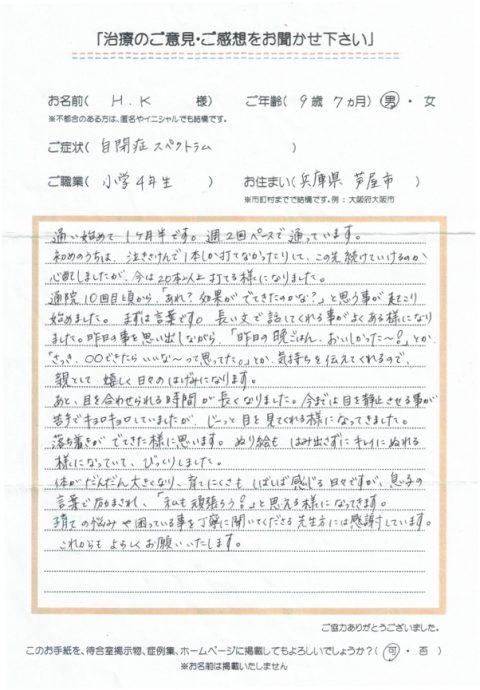 「治療のご意見・ご感想をお聞かせ下さい」
お名前( H.K 様) ご年齢( 9歳 7ヵ月) 男・女
※不都合のある方は、匿名やイニシャルでも結構です。
ご症状( 自閉症スペクトラム )
ご職業( 小学4年生 ) お住まい(兵庫県 芦屋市 )
※市町村までで結構です。例:大阪府大阪市
通い始めて1ヶ月半です。週2回ペースで通っています。
初めのうちは、泣きさけんで1本しか打てなかったりして、この先続けていけるのか
心配しましたが、今は20本以上打てる様になりました。
通院10回目頃から、「あれ?効果がでてきたのかな?」と思う事が起こり
始めました。まずは言葉です。長い文で話してくれる事がよくある様になり
ました。昨日の事を思い出しながら、「昨日の晩ごはん、おいしかった〜?」とか、
「さっき、○○できたらいいな〜って思ってた。」とか、気持ちを伝えてくれるので、
親として嬉しく日々のはげみになります。
あと、目を合わせられる時間が長くなりました。今までは目を静止させる事が
苦手でキョロキョロしていましたが、じーっと目を見てくれる様になってきました。
落ち着きがでてきた様に思います。ぬり絵もはみ出さずにキレイにぬれる
様になっていて、びっくりしました。
体がだんだん大きくなり、育てにくさもしばしば感じる日々ですが、息子の
言葉で励まされ、「私も頑張ろう?」と思える様になってきます。
子育ての悩みや困っている事を丁寧に聞いてくださる先生方には感謝しています。
これからもよろしくお願いいたします。
ご協力ありがとうございました。
このお手紙を、待合室掲示物、症例集、ホームページに掲載してもよろしいでしょうか?( 可・否 )
※お名前は掲載いたしません